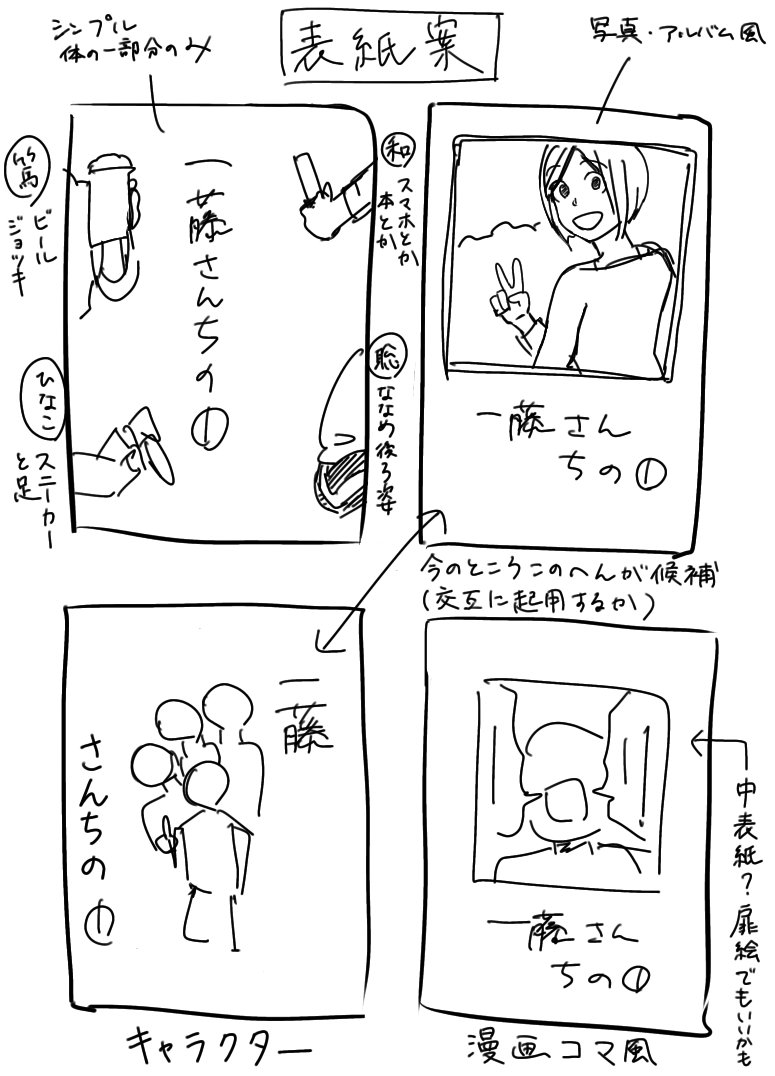 表紙案
シンプル
体の一部分のみ
写真・アルバム風
篤
ビール
ジョッキ
和
スマホとか
本とか
一藤さんちの①
ひなこ
スニーカー
と足
聡
ななめ後ろ姿
一藤さん
ちの①
今のところこのへんが候補
(交互に起用するか)
一藤
さんちの①
キャラクター
一藤さん
ちの①
漫画コマ風
中表紙?扉絵でもいいかも